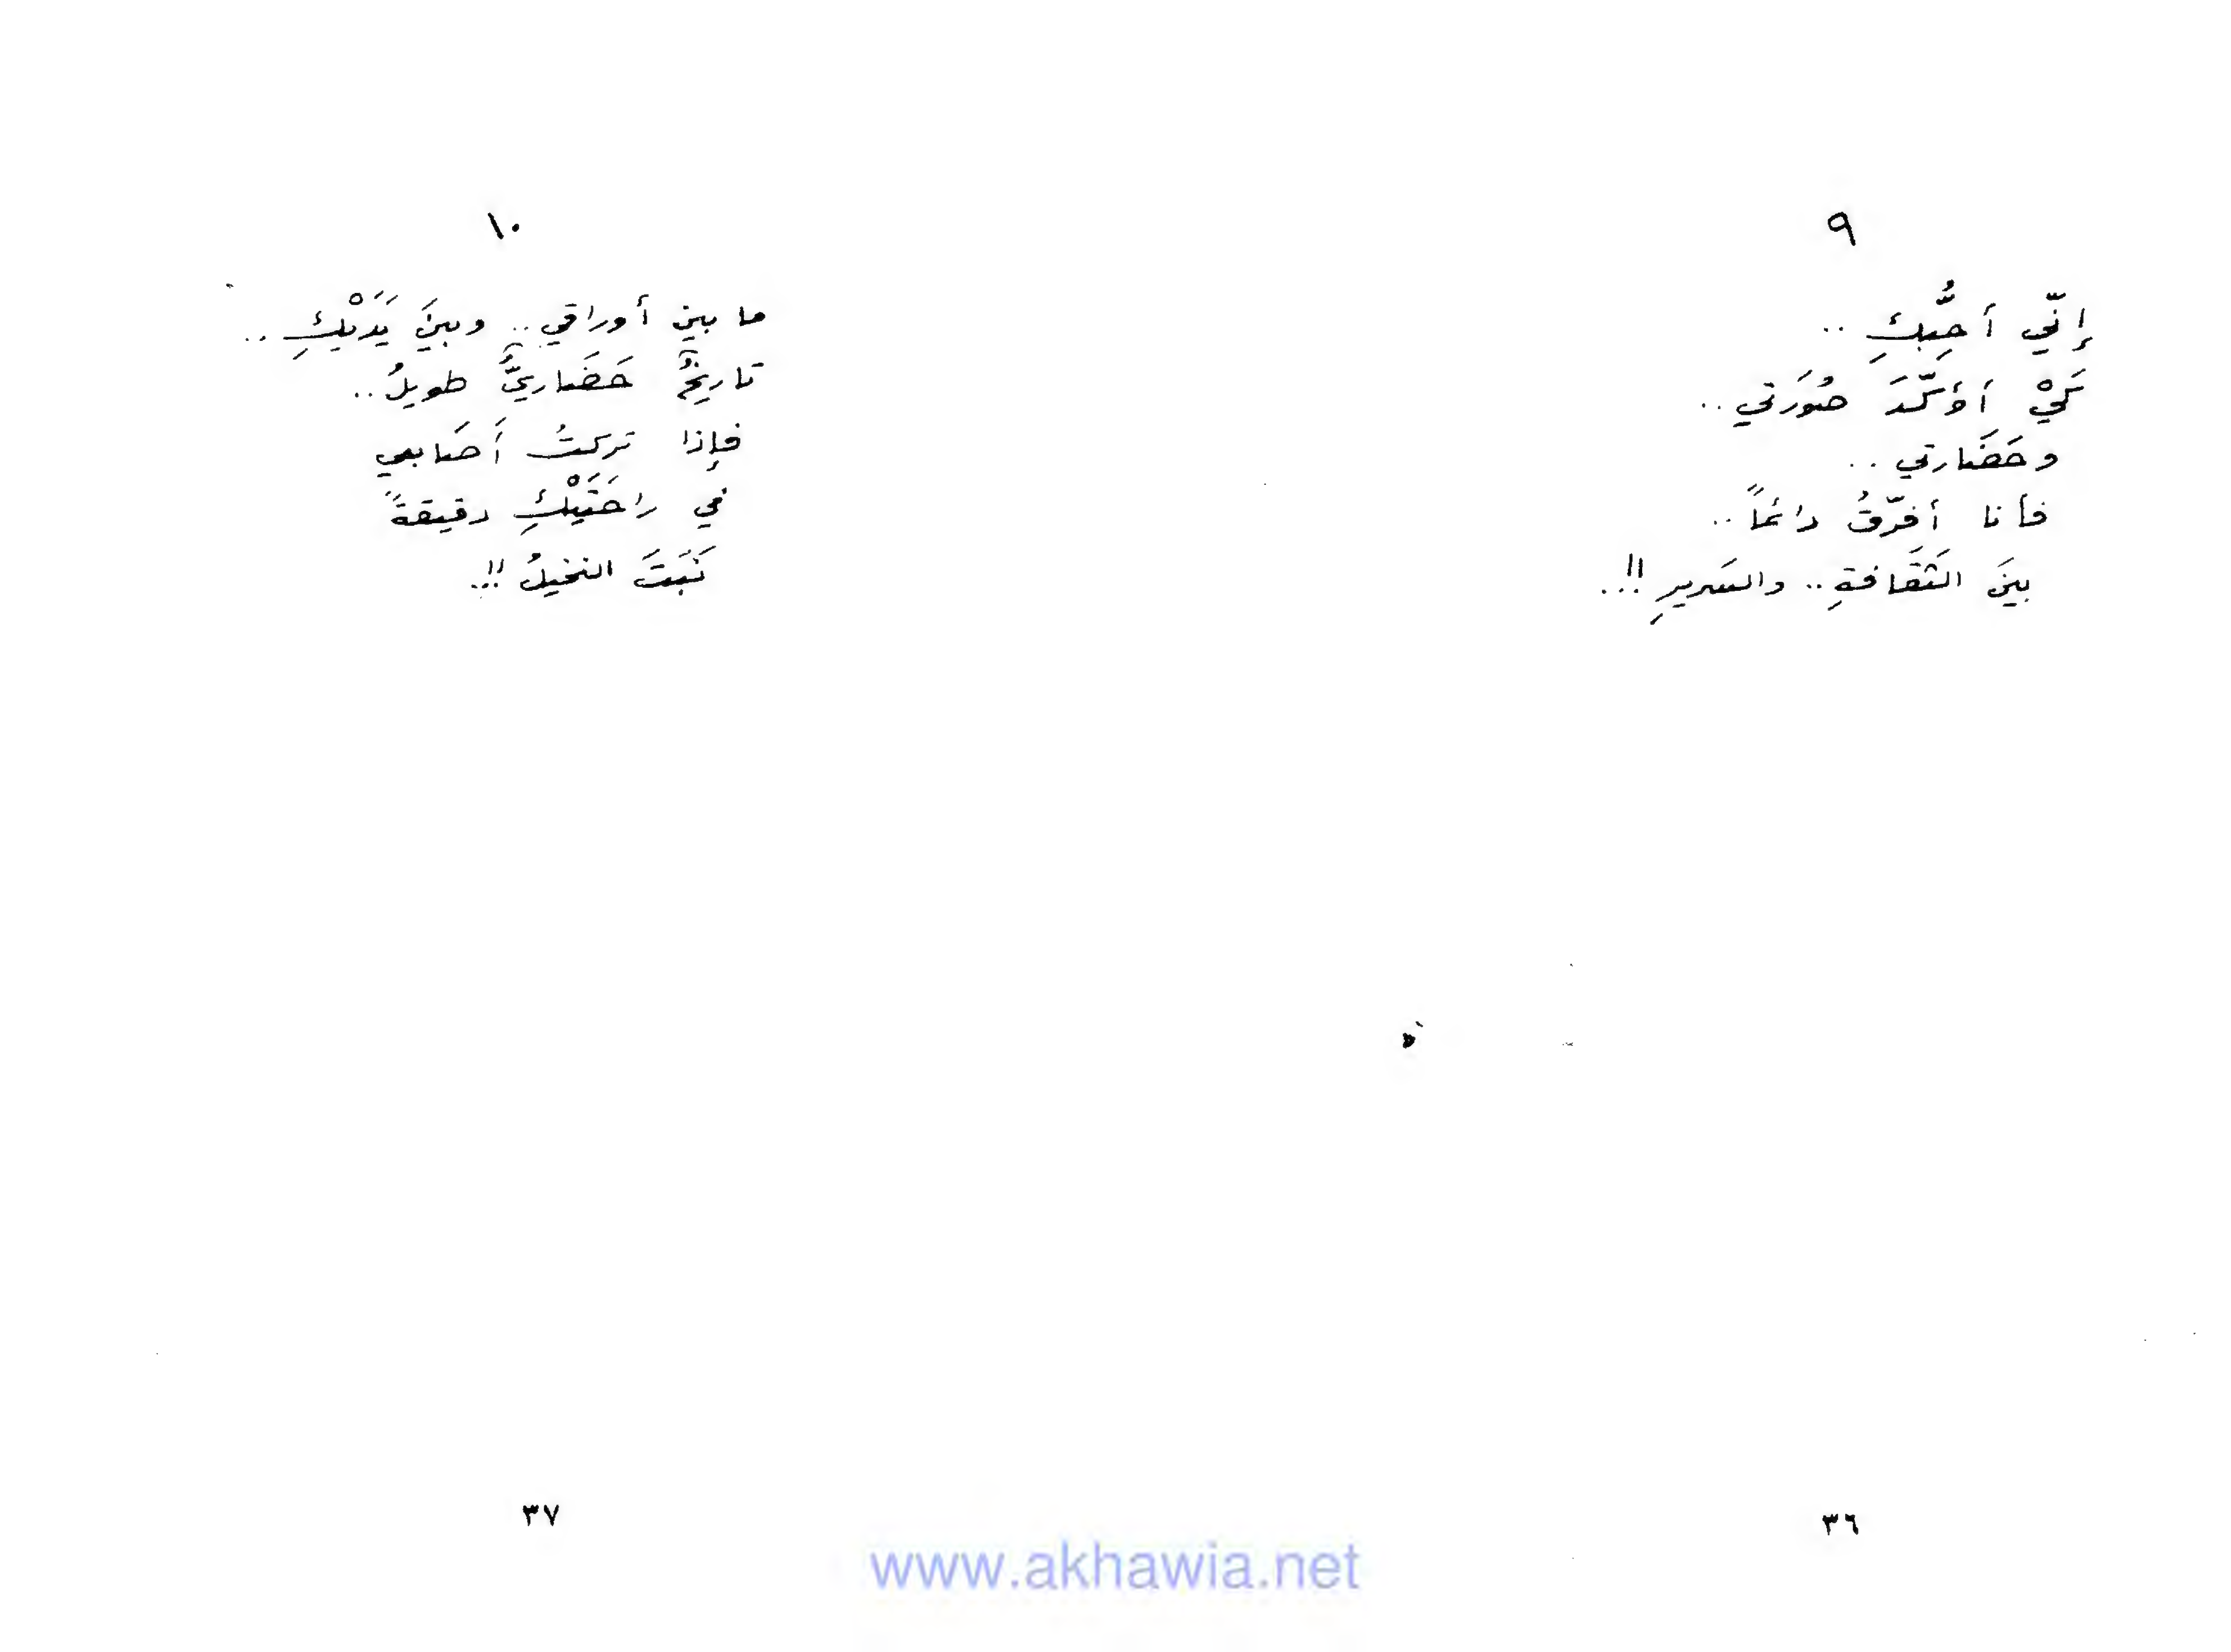 ٩
إنّي أحِبُّكِ ..
كَيْ أؤكّدَ صُورَتي ..
وحَضَارتي ..
فأنا أفرّقُ دائماً ..
بينَ الثَقَافةِ .. والسَريرِ !!..
٣٦
١٠
ما بين أوراقي .. وبينَ يَدَيْكِ ..
تاريخٌ حَضَاريٌّ طويلُ ..
فإذا تركتُ أَصَابعي
في راحَتَيْكِ دقيقةً
نَبَتَ النخيلُ !!..
٣٧
www.akhawia.net